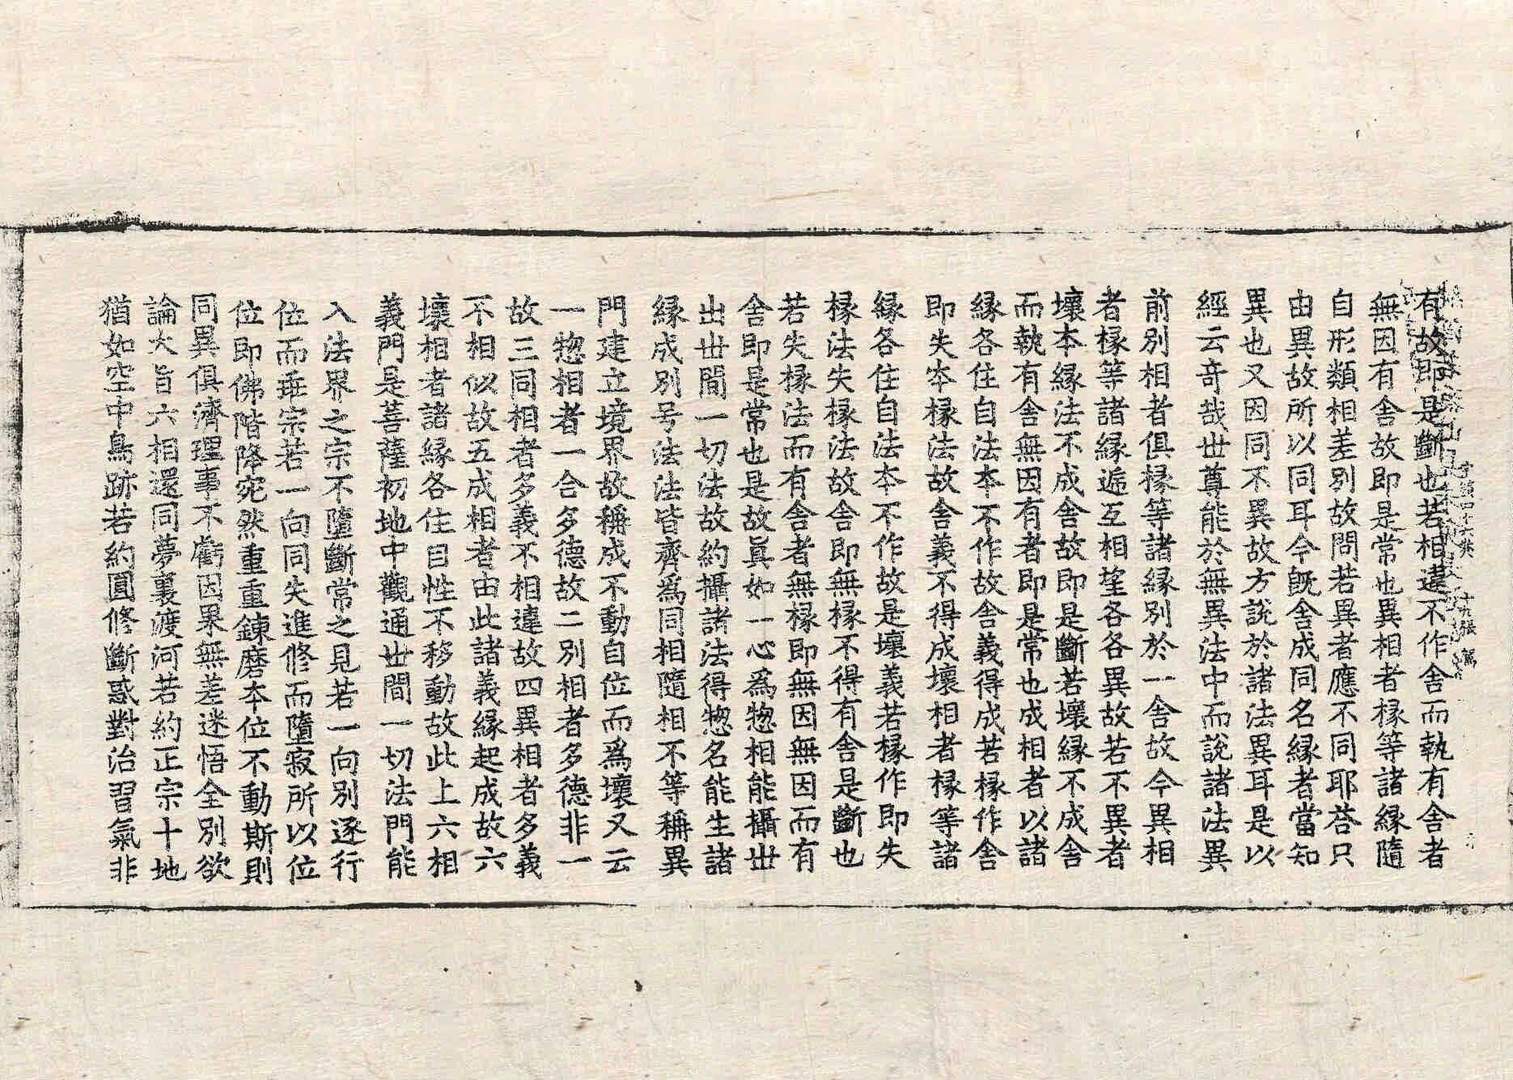 有故即是斷也若相違不作舎而執有舎者
無因有舎故即是常也異相者椽等諸緣隨
自形類相差別故問若異者應不同耶荅只
由異故所以同耳今旣舎成同名緣者當知
異也又因同不異故方說於諸法異耳是以
經云竒哉世尊能於無異法中而說諸法異
前別相者俱椽等諸緣別於一舎故今異相
者椽等諸緣遞互相望各各異故若不異者
壞本緣法不成舎故即是斷若壞緣不成舎
而執有舎無因有者即是常也成相者以諸
緣各住自法本不作故舎義得成若椽作舎
即失本椽法故舎義不得成壞相者椽等諸
緣各住自法本不作故是壞義若椽作即失
椽法失椽法故舎即無椽不得有舎是斷也
若失椽法而有舎者無椽即無因無因而有
舎即是常也是故眞如一心爲惣相能攝世
出世間一切法故約攝諸法得惣名能生諸
緣成別号法法皆齊爲同相隨相不等稱異
門建立境界故稱成不動自位而爲壞又云
一惣相者一合多德故二別相者多德非一
故三同相者多義不相違故四異相者多義
不相似故五成相者由此諸義緣起成故六
壞相者諸緣各住自性不移動故此上六相
義門是菩薩初地中觀通世間一切法門能
入法界之宗不墮斷常之見若一向別逐行
位而乖宗若一向同失進修而墮寂所以位
位即佛階降宛然重重鍊磨本位不動斯則
同異俱濟理事不虧因果無差迷悟全別欲
論大旨六相還同夢裏渡河若約正宗十地
猶如空中鳥跡若約圓修斷惑對治習氣非